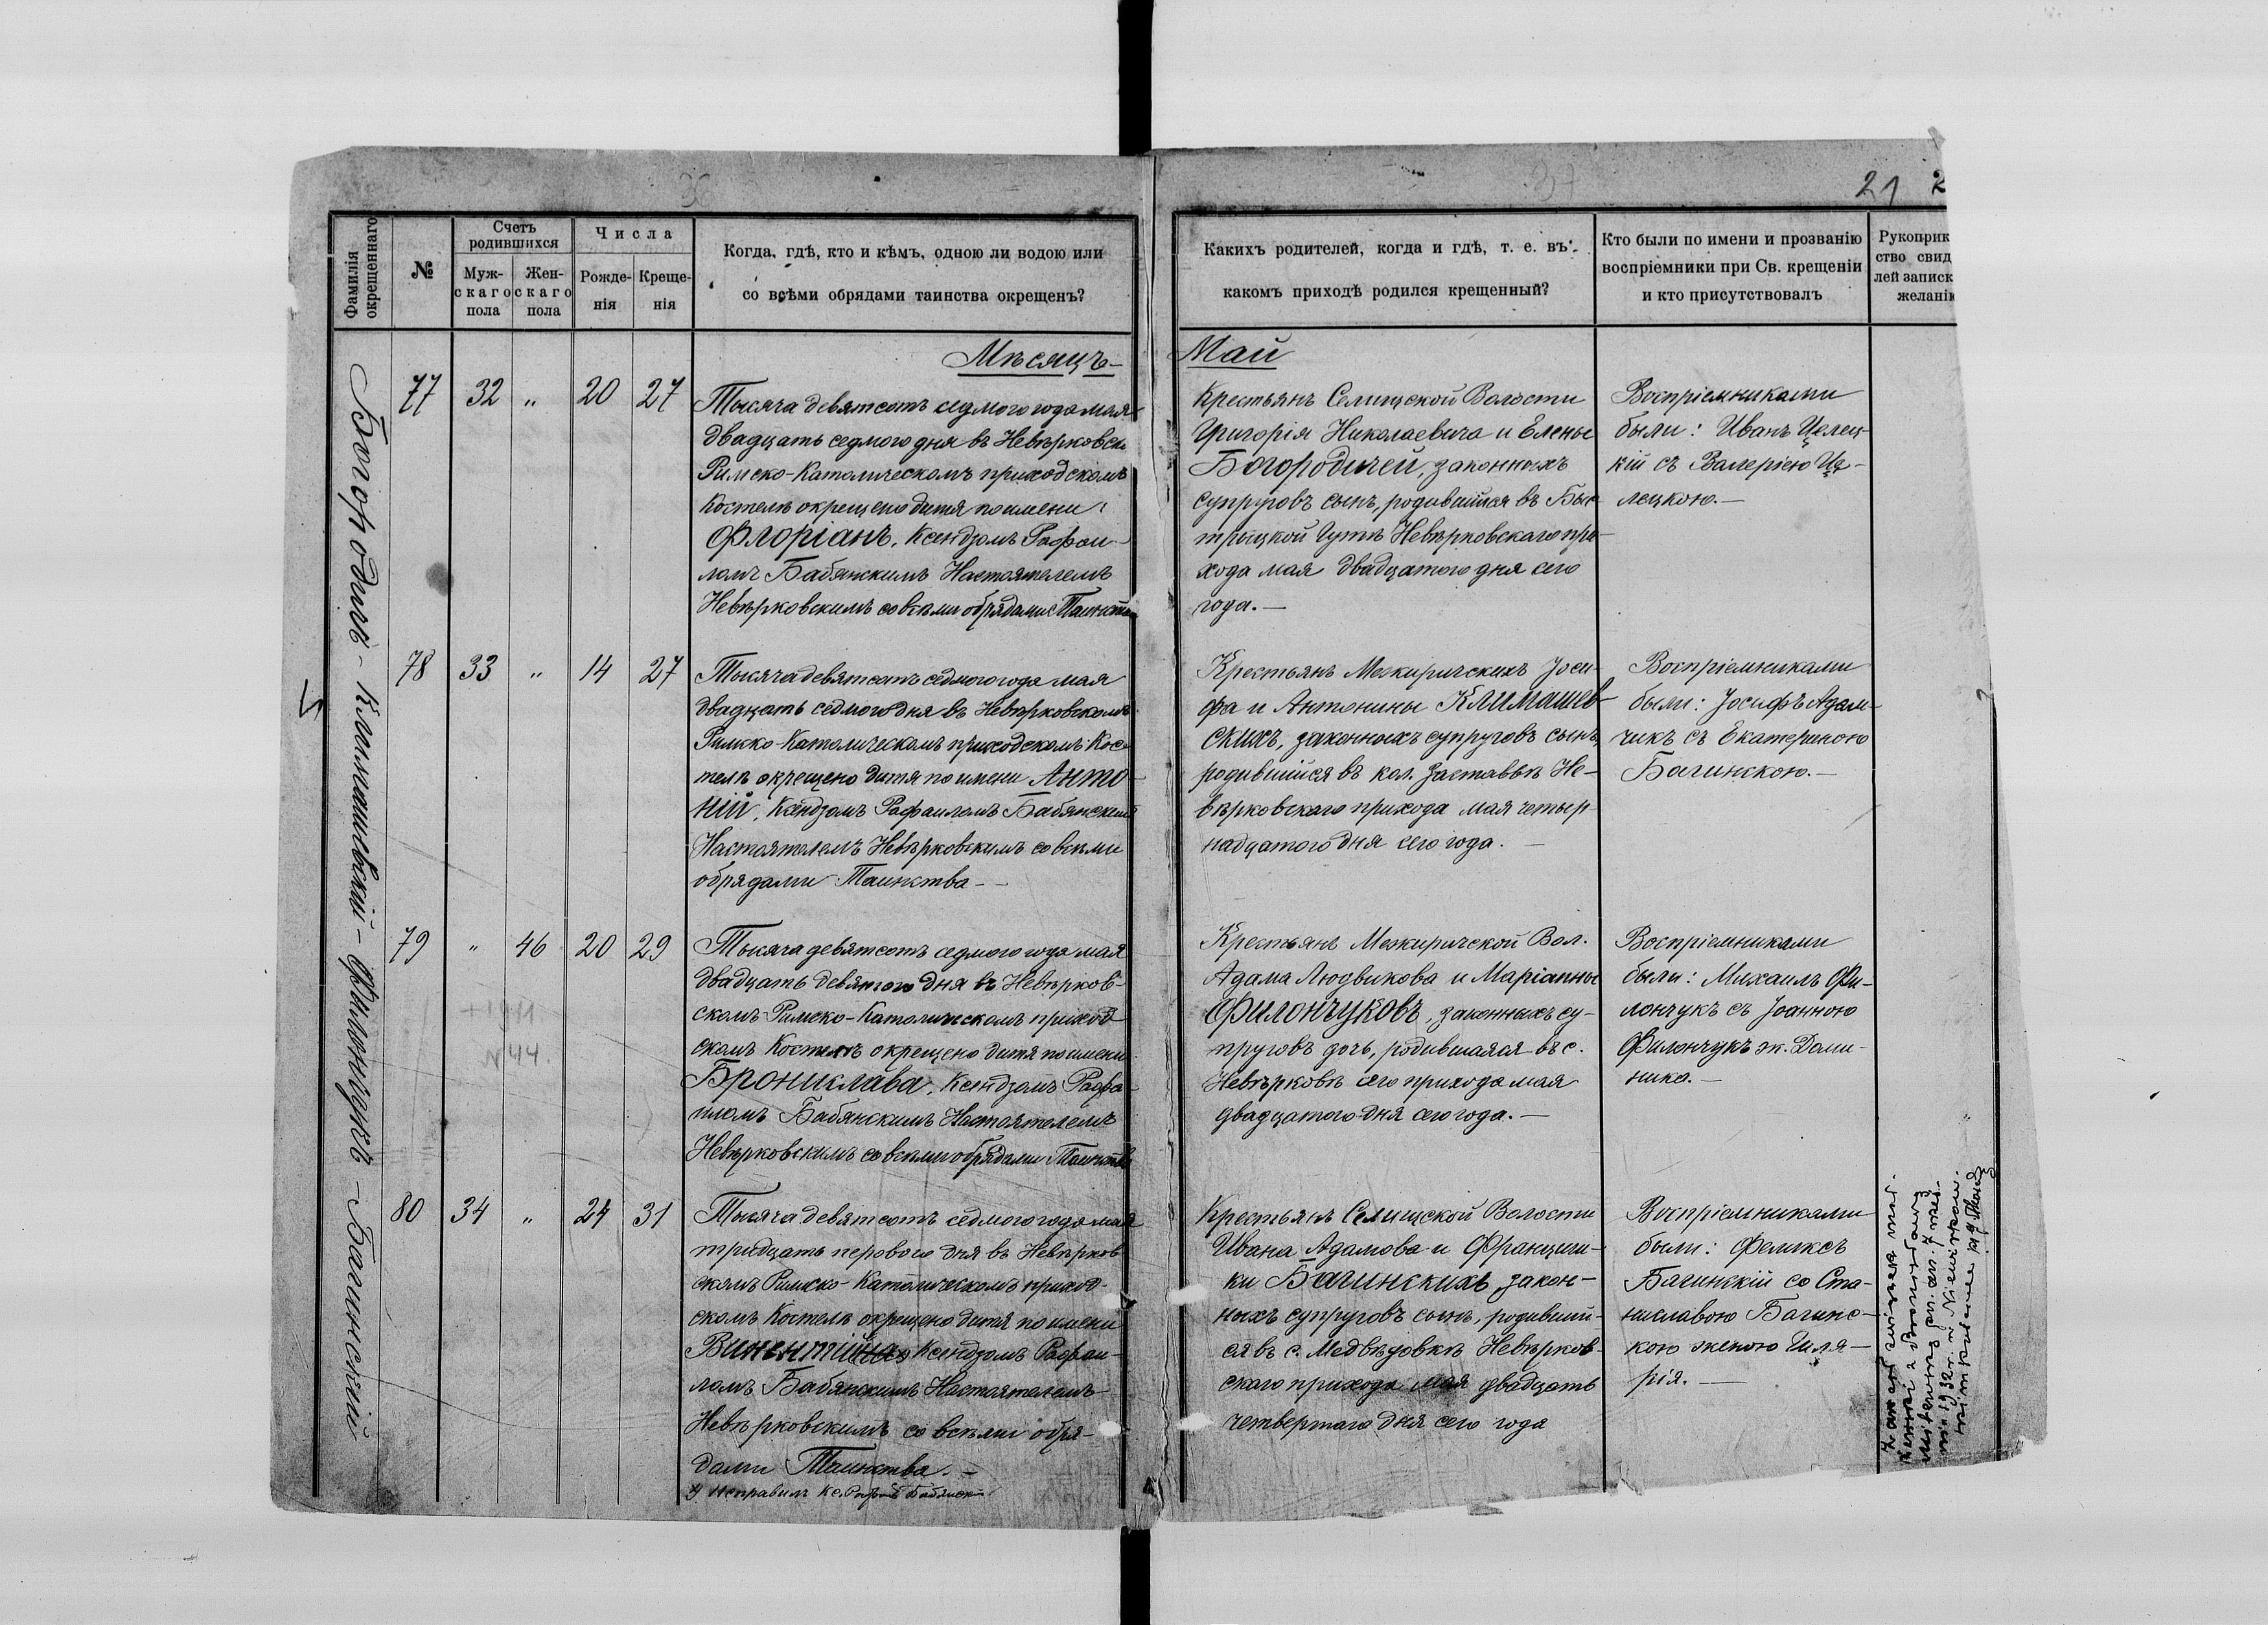 36
37
21
2
Фамилія
окрещеннаго
№
Счетъ
родившихся
Муж-
скаго
пола
Жен-
скаго
пола
Числа
Рожде-
нія
Креще-
нія
Когда, гдѣ, кто и кѣмъ, одною ли водою или
со всѣми обрядами таинства окрещенъ?
Какихъ родителей, когда и гдѣ, т. е. въ
какомъ приходѣ родился крещенный?
Кто были по имени и прозванію
воспріемники при Св. крещеніи
и кто присутствовалъ
Рукоприк
ство свид
лей записк
желанію
Мѣсяцъ-
Май
Богородичъ - Климашевскій - Филончукъ - Багинскій
77 32 " 20 27
Тысяча девятсотъ седмого года мая
двадцать седмого дня въ Невѣрковск
Римско-Католическомъ приходскомъ
Костелѣ окрещено дитя по имени
Флоріанъ, Ксендзомъ Рафаи-
ломъ Бабянскимъ Настоятелемъ
Невѣрковскимъ со всѣми обрядами Таинства
Крестьянъ Селищской Волости
Григорія Николаевича и Елены
Богородичей, законныхъ
супруговъ сынъ, родившійся въ Быс-
трицкой Гутѣ Невѣрковскаго при-
хода мая двадцатого дня сего
года.—
Воспріемниками
были: Иванъ Целец-
кій съ Валеріею Це-
лецкою.—
78 33 " 14 27
Тысяча девятсотъ седмого года мая
двадцать седмого дня въ Невѣрковскомъ
Римско-Католическомъ приходскомъ Кос-
телѣ окрещено дитя по имени Анто-
ній, Ксендзомъ Рафаиломъ Бабянскимъ
Настоятелемъ Невѣрковскимъ со всѣми
обрядами Таинства—
Крестьянъ Межиричскихъ Іоси-
фа и Антонины Климашев-
скихъ, законныхъ супруговъ сынъ,
родившійся въ кол. Заставвѣ Не-
вѣрковскаго прихода мая четыр-
надцатого дня сего года.—
Воспріемниками
были: Іосифъ Адам-
чикъ съ Екатериною
Багинскою.—
79 " 46 20 29
+1911
N 44.
Тысяча девятсотъ седмого года мая
двадцать девятого дня въ Невѣрков-
скомъ Римско-Католическомъ приход-
скомъ Костелѣ окрещено дитя по имени
Бронислава, Ксендзомъ Рафа-
иломъ Бабянскимъ Настоятелемъ
Невѣрковскимъ со всѣми обрядами Таинства
Крестьянъ Межиричской Вол.
Адама Людвикова и Маріанны
Филончуковъ, законныхъ су-
пруговъ дочь, родившаяся въ с.
Невѣрковѣ сего прихода мая
двадцатого дня сего года.—
Воспріемниками
были: Михаилъ Фи-
лончукъ съ Іоанною
Филончукъ ж. Доми-
ника.—
80 34 " 24 31
Тысяча девятсотъ седмого года мая
тридцать перваго дня въ Невѣрков-
скомъ Римско-Католическомъ приход-
скомъ Костелѣ окрещено дитя по имени
Винентій Ксендзомъ Рафаи-
ломъ Бабянскимъ Настоятелемъ
Невѣрковскимъ со всѣми обря-
дами Таинства.—
Исправилъ Кс. Рафаилъ Бабянскій
Крестьянъ Селищской Волости
Ивана Адамова и Францишк-
ки Багинскихъ, закон-
ныхъ супруговъ сынъ, родивший-
ся въ с. Медвѣдовкѣ Невѣрков-
скаго прихода мая двадцать
четвертаго дня сего года
Воспріемниками
были: Феликсъ
Багинскій со Ста-
ниславою Багинс-
кою женою Гиля-
рія.—
Zawarł związek mał-
żeński z
7
1932 r. w Niewirkowie.